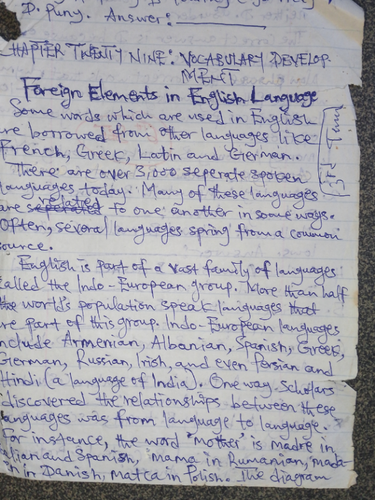 D. Puny. Answer:
CHAPTER TWENTY NINE: VOCABULARY DEVELOP-
MENT
Foreign Elements in English Language
Some words which are used in English
are borrowed from other languages like
French, Greek, Latin and German.
There are over 3,000 seperate spoken
languages today. Many of these languages
are related to one another in some ways.
Often, several languages spring from a common
source.
English is part of a vast family of languages
called the Indo-European group. More than half
the world's population speak languages that
are part of this group. Indo-European languages
include Armenian, Albanian, Spanish, Greek,
German, Russian, Irish, and even Persian and
Hindi (a language of India). One way scholars
discovered the relationships between these
languages was from language to language.
For instance, the word "mother" is madre in
Italian and Spanish, mama in Rumanian, mada-
in Danish, matca in Polish. The diagram